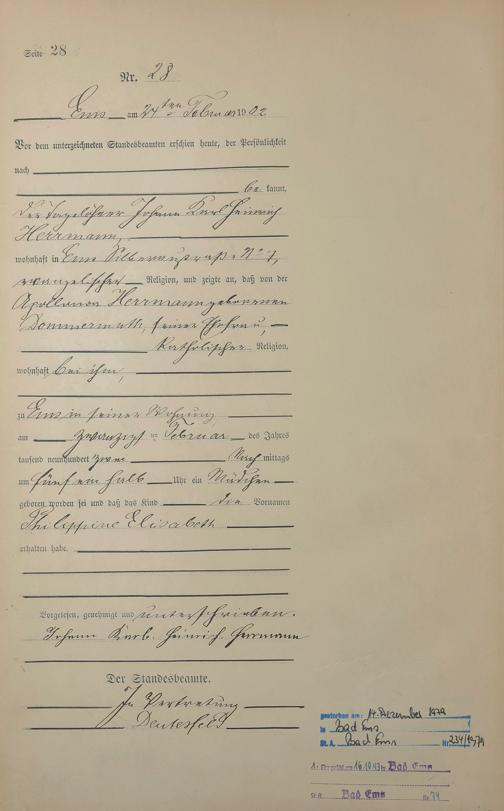 Seite 28
Nr. 28
Ems am 24ten Februar 1902
Vor dem unterzeichneten Standesbeamten erschien heute, der Persönlichkeit
nach
be kannt,
der Tagelöhner Johann Karl Heinrich
Herrmann,
wohnhaft in Ems Silberaustraße No 7,
evangelischer Religion, und zeigte an, daß von der
Apollonia Herrmann geborenen
Dommermuth, seiner Ehefrau,
katholischer Religion,
wohnhaft bei ihm,
zu Ems in seiner Wohnung
am zwanzigsten Februar des Jahres
tausend neunhundert zwei Nach mittags
um fünf ein halb Uhr ein Mädchen
geboren worden sei und daß das Kind die Vornamen
Philippine Elisabeth
erhalten habe.
Vorgelesen, genehmigt und unterschrieben.
Johann Karl Heinrich Herrmann
Der Standesbeamte.
In Vertretung
gestorben am: 14. Dezember 1979
in Bad Ems
St. A. Bad Ems Nr. 234/1979
16.10.43 in Bad Ems
St. A. Bad Ems Nr. 74